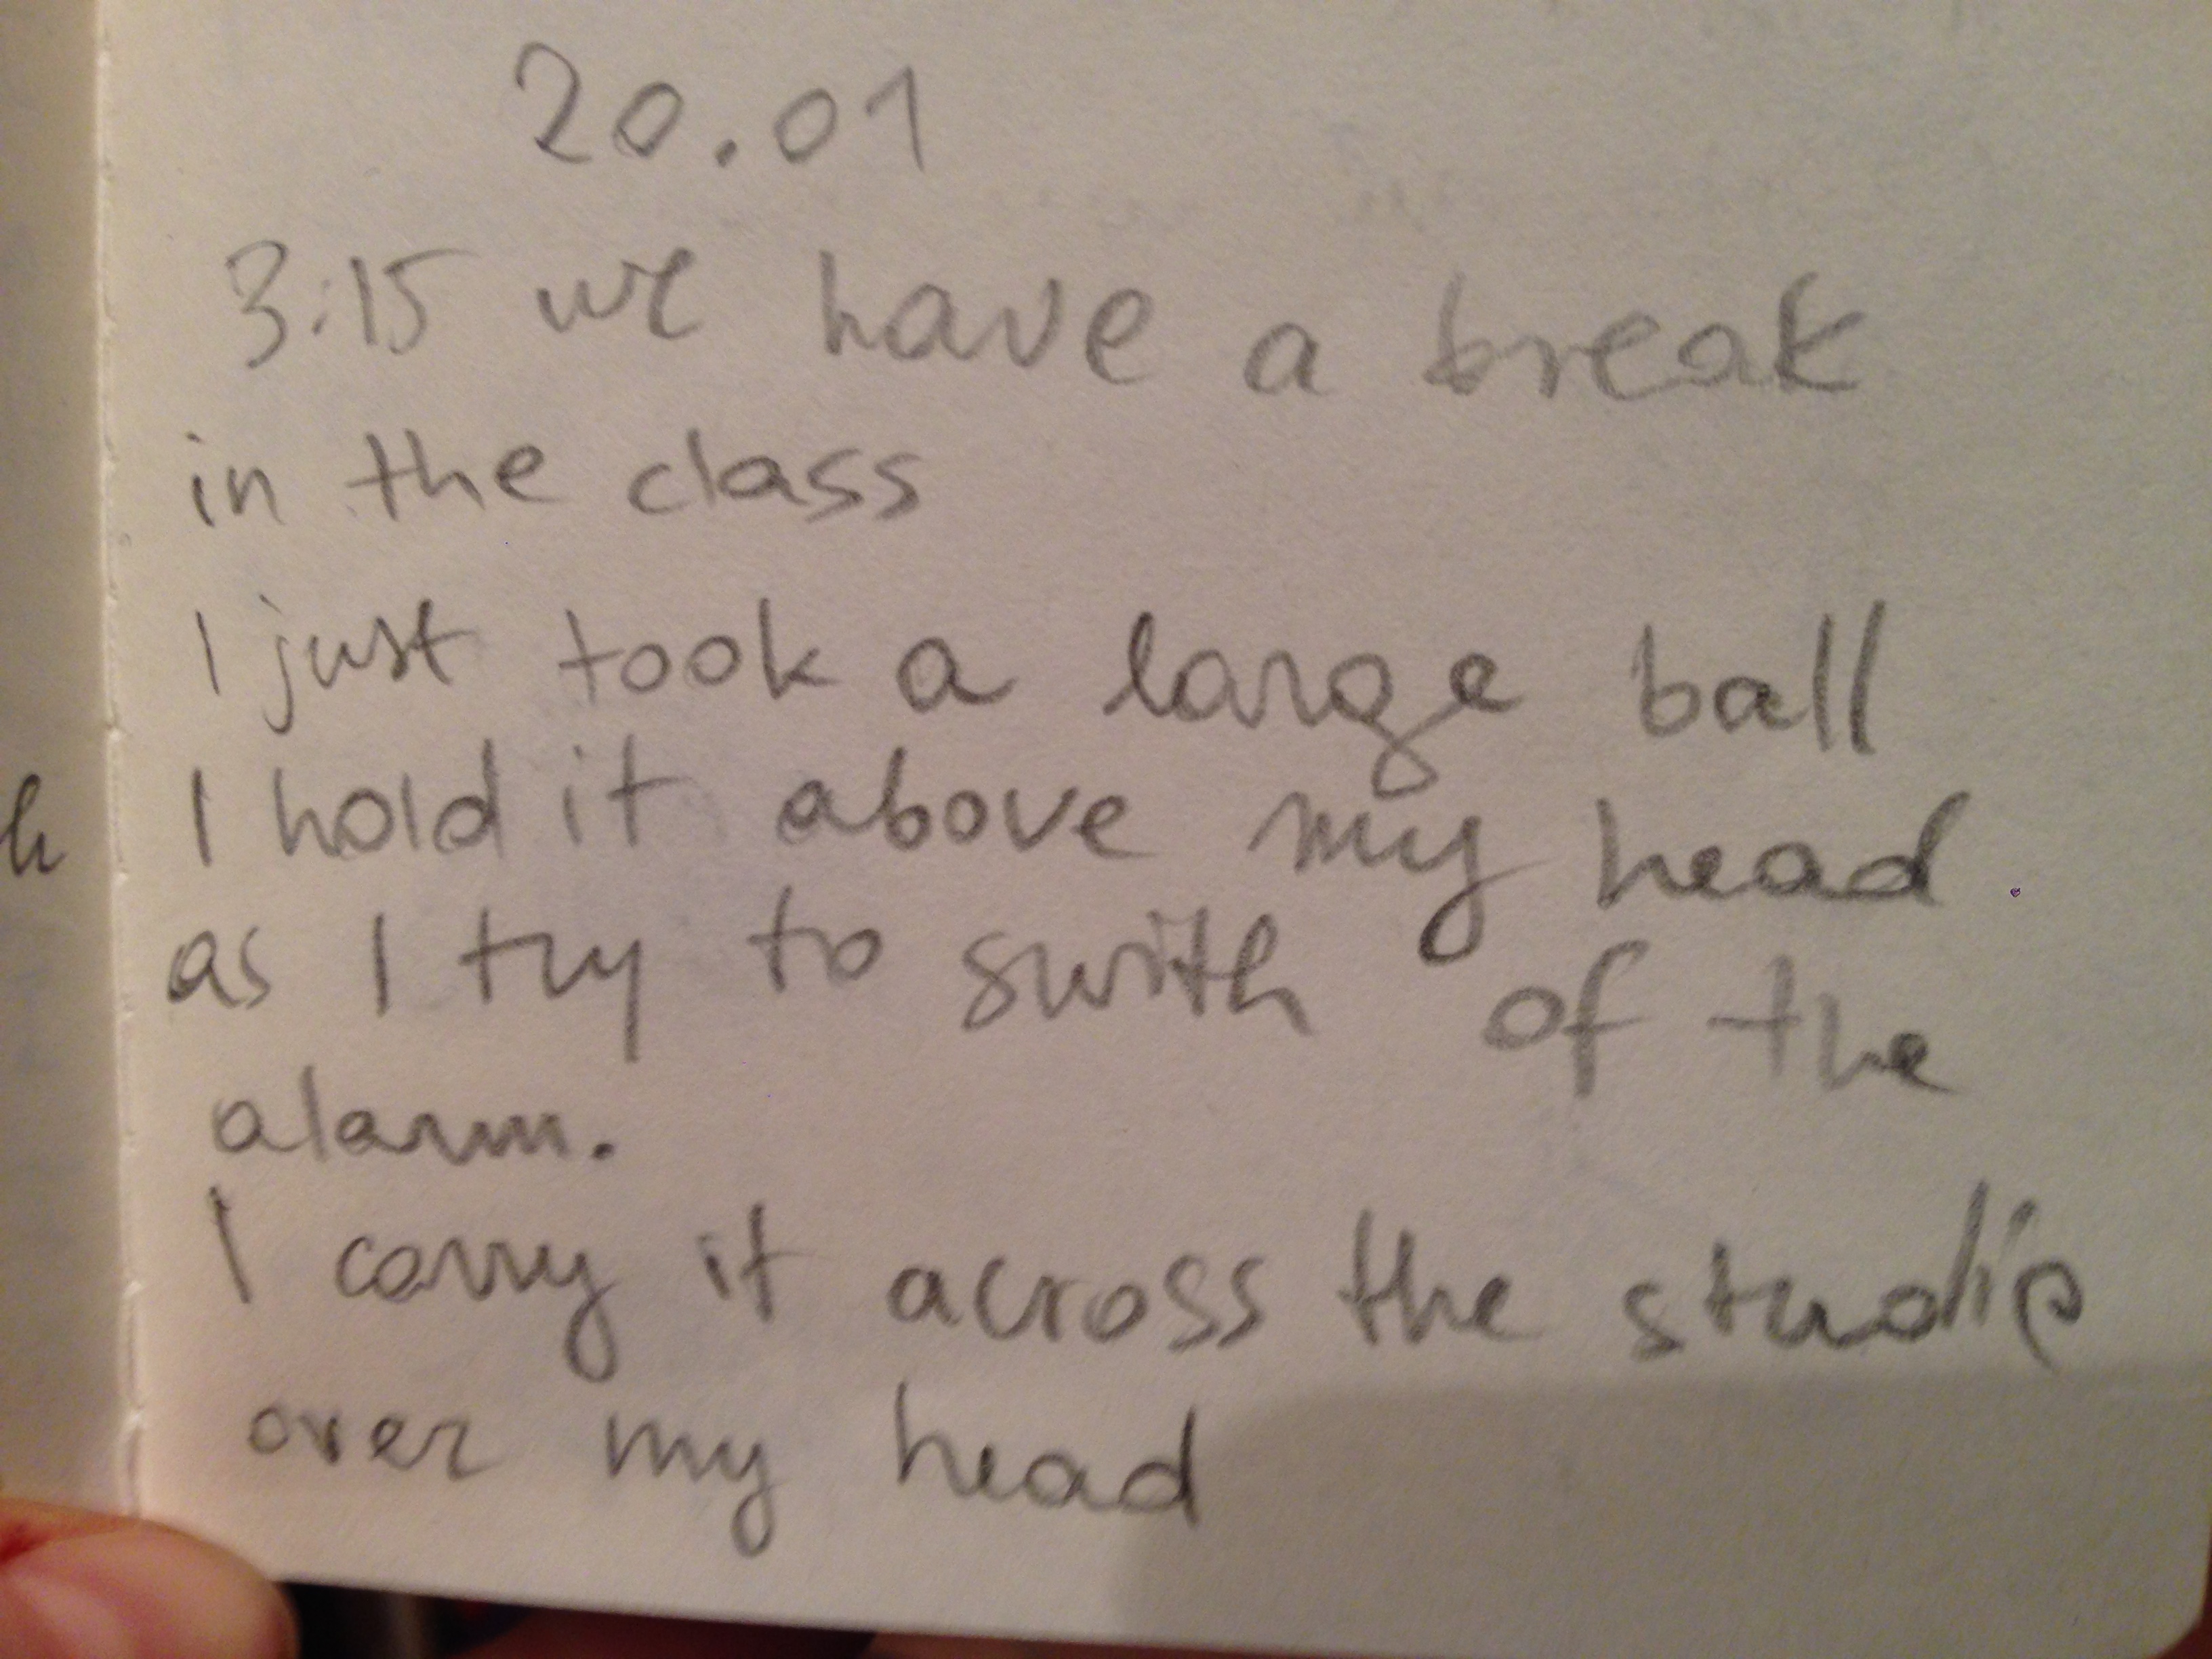 20.01
3:15 we have a break
in the class
I just took a large ball
I hold it above my head
as I try to swith of the
alarm.
I carry it across the studio
over my head